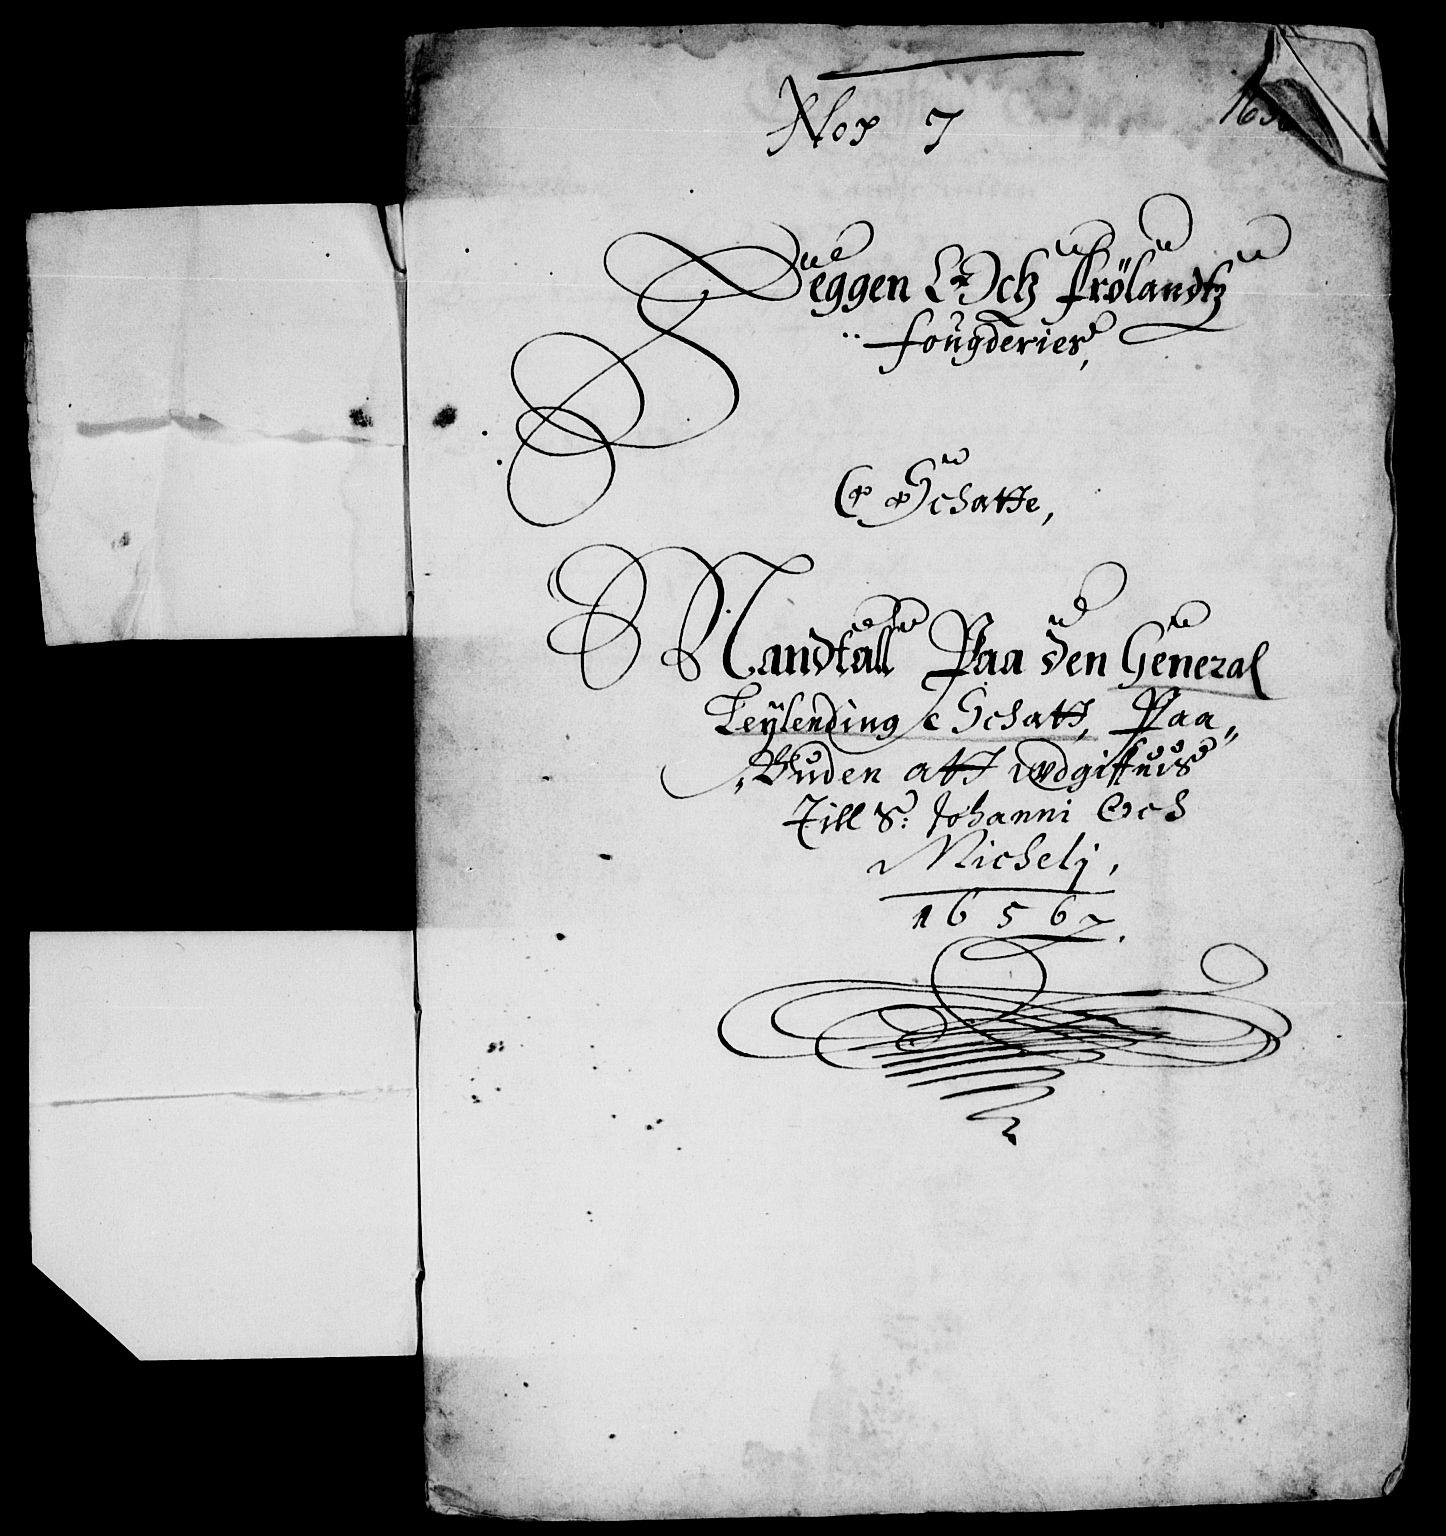 No: 7
Jeggen Och Frölandtz
fougderier,
Schatte,
Mandtall Paa den General
Leÿlending Schatt, Paa„
„Buden att wdgiffuis
Till S: Johanni Och
Michelj,
1656